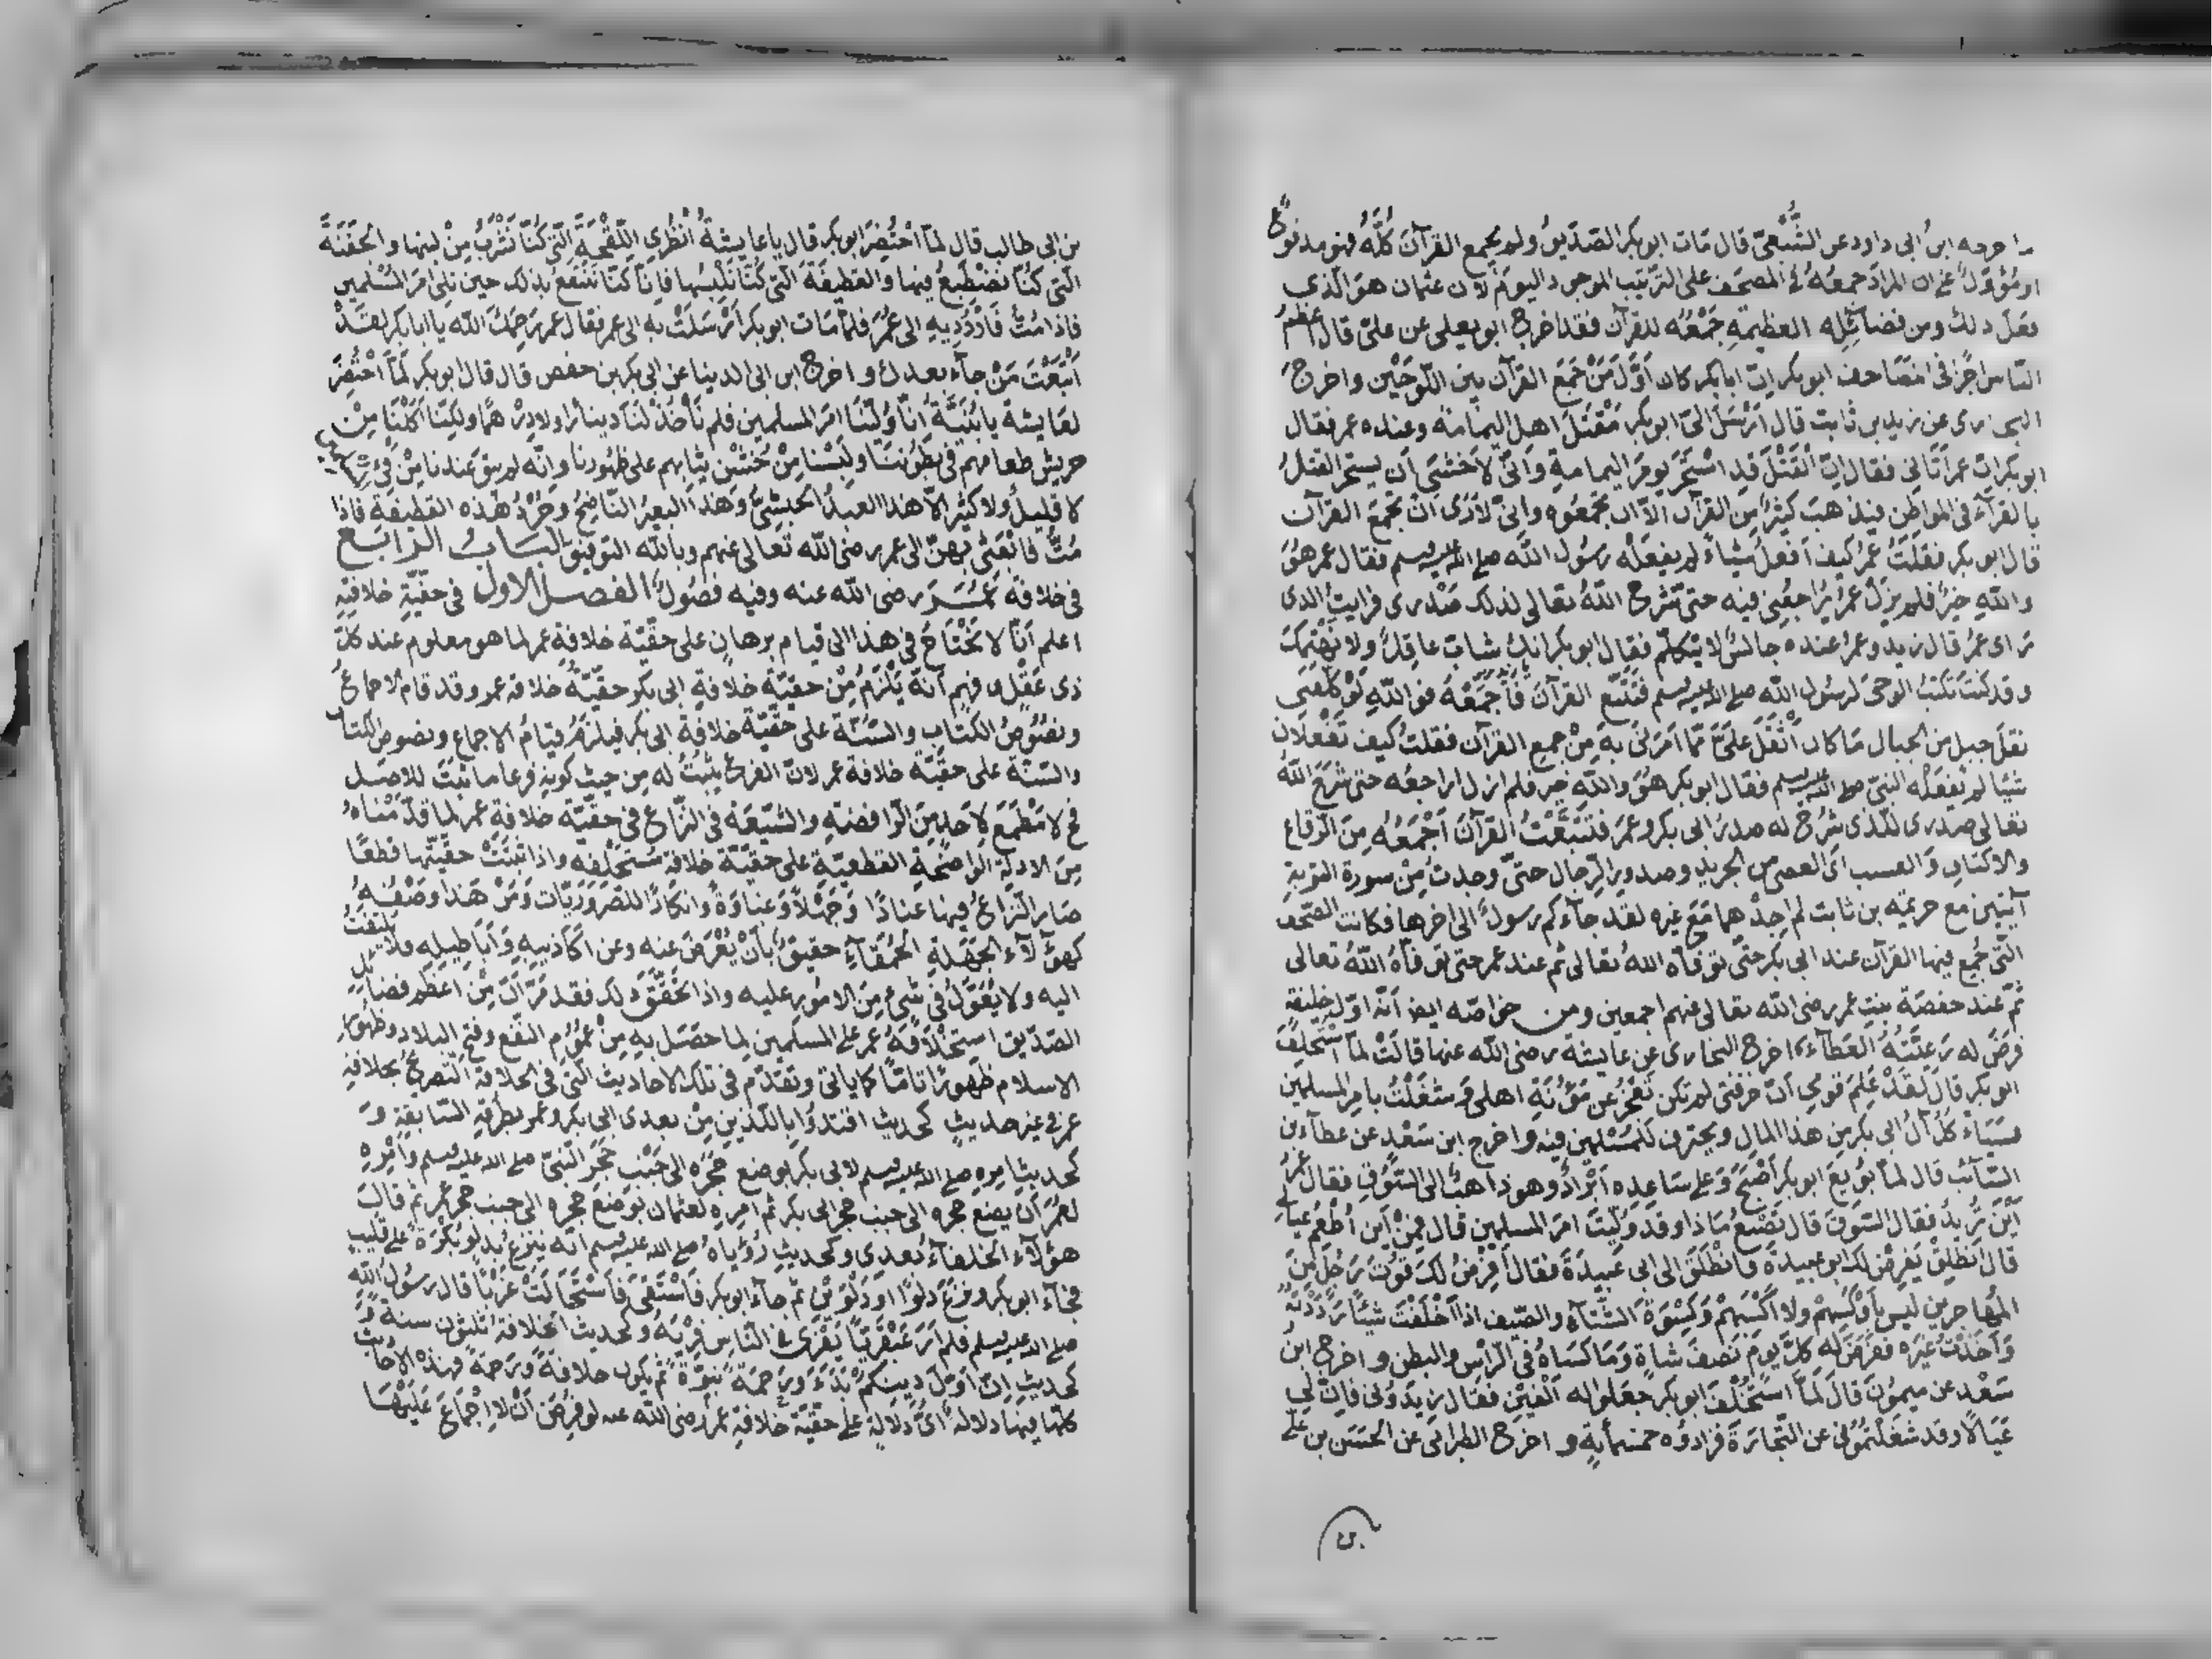 ما اخرجه ابن ابى داود عن الشَّعْبىّ قال مَات ابو بكر الصّدّيقُ ولم يجمع القرآنَ كُلَّهُ فهو مدفوعٌ
او مُؤَوَّلٌ على ان المرادَ جمعَهُ فى المصحَف على الترتيب الموجود اليومَ لان عثمان هو الّذى
فعَلَ ذلكَ ومن فضائِلِه العظيمَةِ جَمْعُه للقرآن فقد اخرج ابو يعلى عن علىّ قال اَعظمُ
النّاسِ اجرًا فى المصَاحف ابو بكر انّ ابا بكر كان اَوَّلَ مَنْ جَمَعَ القرآن بين اللّوحَيْن واخرج
البخارى عن زيد بن ثابت قال اَرْسَلَ اِلىّ ابو بكر مَقْتَلَ اهلِ اليمَامَة وعنده عمر فقال
ابو بكر انّ عمر اَتَانى فقال انّ القَتْلَ قد اسْتَحَرّ يومَ اليمامةِ وَانّى لاَخشَى اَن يستحر القتلُ
بالقرّآء فى المواطِن فيذهبَ كثيرٌ من القرآن الّا ان تجمعُوه وانى لاَرَى اَنْ تَجْمَعَ القرآن
قال ابو بكر فقلتُ لعُمرُ كيف اَفعلُ شيئاً لم يفعَلْه رسُولُ اللّه صلى الله عليه وسلم فقال عمر هُوَ
واللّهِ خيرٌ فلم يَزَلْ عمرُ يُراجعُنِى فيه حتى شرح اللّهُ تعالى لذلك صَدْرى فرايتُ الذى
رَاى عمرُ قال زيد وعمرُ عنده جالسٌ لا يتكلّم فقال ابو بكر انك شابّ عاقِلٌ ولا نتّهِمُكَ
وقد كنتَ تكتبُ الوحىَ لرسُول اللّه صلى الله عليه وسلم فتَتَبّع القرآنَ فَأَجْمَعْهُ فواللّهِ لَوْ كلّفَنى
نقلَ جبلٍ من الجبال مَا كان اَثْقَلَ علَىَّ ممّا اَمرَنى بهِ مِنْ جمعِ القرآن فقلتُ كيف تَفْعَلَان
شيئًا لم يفعَلْه النبىّ صلى الله عليه وسلم فقال ابو بكر هُوَ واللّهِ خير فلم ازل اراجعُه حتى شرَحَ اللّهُ
تعالى صدرى للّذى شَرَحَ له صدرَ ابى بكر وعمر فتتبَّعْتُ القرآنَ اَجْمَعُه مِنَ الرّقاع
والاكتافِ وَالعسب اى العصى من الجريدِ وصدورِ الرّجال حتىّ وجدتُ مِنْ سورة التوبةِ
آيتين مع خزيمه بن ثابت لم اَجِدْ هما مَعَ غيره لقد جآءكم رسولٌ الى اخرها فكانت الصّحف
التّى جُمِع فيها القرآن عند ابى بكر حتّى توفّاه اللهُ تعالى ثم عند عمر حتى توفّاهُ اللّهُ تعالى
ثمّ عند حفصَة بنتِ عمر رضى اللّه تعالى عنهم اجمعين ومن خواصّه ايضا اَنّه اوّل خليفة
فرضَ له رَعِيّتُهُ العَطَآءَ اخرج البخارى عن عايشة رضى اللّه عنها قالَتْ لمّا اسْتُخْلِفَ
ابو بكر قال لقَدْ عَلِمَ قومِى اَنّ حرفتى لم تكن تَعْجزُ عن مَؤُنَةِ اهلى وَشُغِلْتُ بامرِ المسلمين
فسَيَاْكُلُ آلُ ابى بكر من هذا المالِ ويحترف لِلمُسْلِمين فيه واخرج ابن سَعْدٍ عن عطآء بن
السّائبِ قال لمّا بُويِعَ ابو بكر اَصْبحَ وَعلى سَاعِدِه اَبْرادٌ وهو ذاهبٌ الى السُّوقِ فقال عمرُ
اَيْنَ تُريدُ فقال السّوقَ قال تصْنَعُ مَاذا وقد وَلِيتَ امرَ المسلمين قال فَمِنْ اَين اُطعِمُ عيالى
قال انطلِقْ يَفرِضْ لك ابو عبيدة فانْطَلَقَ الى ابى عُبيدَةَ فقال اَفْرِضُ لكَ قُوتَ رَجُلٍ مِنَ
المُهَاجرين ليس باَوْكَسِهمْ ولا اَكْسَبهمْ وَكِسْوَةَ الشِّتآءِ والصّيف اذا اَخْلَقْتَ شيئًا رَدَدْتَه
وَاَخذْتَ غيرَه ففرَضَ له كلَّ يومٍ نصفَ شاةٍ وَمَا كسَاهُ فى الرّاسِ والبطن واخرج ابن
سَعْد عن ميمونَ قالَ لَمّا اسْتُخْلِفَ ابو بكر جَعلوا له اَلْفَيْنِ فقال زيدُونى فاِنّ لِى
عَيَالًا وقد شغَلتُمُونى عن التّجارَةِ فزادُوه خمسَمأيةٍ واخرج الطبرانى عن الحسَنِ بن علىّ
بن ابى طالبٍ قال لمّا احْتُضِرَ ابو بكر قال يا عايشةُ اُنْظُرِى اللّقْحَةَ الّتى كُنّا نشْرَبُ مِنْ لبنها والجَفْنَةَ
الّتى كُنّا نَصْطَبغُ فيها والقطيفَةَ الّتى كُنّا نَلْبَسُها فاِنّا كنّا ننْتَفعُ بذلك حين نلى اَمرَ المُسْلمين
فاذا مُتُّ فَاْرْدُدِيهِ الى عُمَرَ فلمّا مَات ابو بكر اَرْسَلَتْ به الى عمر فقال عمر رَحِمَكَ اللّه يا ابا بكر لقَدْ
اَتْعَبْتَ مَنْ جآء بعدك واخرج ابن ابى الدينا عن ابى بكر بن حفص قال قال ابو بكر لَمّا احْتُضِرَ
لعَايشةَ يا بُنَيَّةُ اِنّا وُلّينَا اَمرَ المسلمين فلم نَأخُذْ لنَا دينارًا ولا دِرْهمًا ولكِنّا اَكَلْنَا مِنْ
جريشِ طعامهم فى بُطونِنَا ولبِسْنا مِنْ خُشْنِ ثيَابِهم على ظهُورنا وانّه لم يبق عندنا مِنْ فَئِ المسلمين
لا قليلٌ ولا كثيرٌ الّا هذا العبدُ الحبشِىُّ وَهذا البعيرُ النّاضِحُ وجَرْدُ هذه القطيفةِ فاذا
مُتُّ فَابْعَثِى بِهنّ الى عمر رضى اللّه تعالى عنهم وبالله التوفيق البَابُ الرّابع
فى خلافة عُمَرَ رضى اللّه عنه وفيه فصُولٌ الفصل الاول فى حقّيّةِ خلافتِهِ
اعلم اَنّا لا نَحْتَاجُ فى هذا الى قيام برهانٍ على حقّيّة خلافةِ عمر لما هو معلوم عند كلِّ
ذى عَقْلٍ وفهمٍ اَنّه يَلْزَمُ مِنْ حقّيّةِ خلافةِ ابى بكر حقّيّةُ خلافة عمر وقد قام الاجماعُ
ونصُوصُ الكتابِ والسّنّة على حَقّيّةِ خلافةِ ابى بكر فيلزمُ قيامُ الاجماعِ ونصوصِ الكتاب
والسّنّة على حقّيّة خلافة عمر لانّ الفرعَ يَثْبُتُ له مِن حيث كونِهِ فرعا ما ثبتَ للاصل
فح لا مَطْمَعَ لاَحدٍ مِنَ الرّافضةِ والشّيعَة فى النّزاع فى حقيّة خلافةِ عمر لما قدّمْناهُ
مِنَ الادلّة الواضحةِ القطعيّةِ على حقّيّة خلافة مُستخلِفه واذا ثبتَتْ حقّيّتها قطعًا
صَار النّزاعُ فيها عنَادًا وَجَهْلاً وَغَبَاوَةً وانكارًا للضّرُوريّات وَمَنْ هَذا وصْفُه
كهؤُلآءِ الجَهَلَةِ الحُمَقآءِ حقيقٌ بِاَنْ يُعْرَضَ عنه وعن اكاذيبهِ وَاَبَاطيلهِ فلا يُلتفتُ
اليه ولا يُعَوَّلُ فى شئٍ مِنَ الامُورِ عليه واذا تحَقّقَ ذلك فقد مَرّ اَنّ مِنْ اعظم فضايل
الصّدّيقِ استخْلافَهُ عمر على المسلمين لما حصَل بهِ مِنْ عُمُومِ النّفع وفتحِ البلاد وظهُورِ
الاسلام ظهورًا تامًّا كما ياتى وتقدّم فى تلك الاحاديث الّتى فى الخلافة التصريحُ بخلافةِ
عمر فى غير حديثٍ كحديث اقتدُوا بالّلذَيْنِ مِنْ بعدى ابى بكر وعمر بطرقهِ السّابقةِ وَ
كحديثِ امرهِ صلى الله عليه وسلم لابى بكر بوضع حَجَرِه الى جَنْبِ حَجَرِ النّبىّ صلى الله عليه وسلم وأمرِهِ
لعُمَرَ اَن يضع حجره الى جنب حجر ابى بكر ثم امره لعثمان بوَضْعِ حجره الى جنب حجر عمر ثم قال
هؤلآء الخلفآءُ بَعدى وكحديثِ رُؤْياهُ صلى الله عليه وسلم انه ينزعُ بدلو بَكْرَةٍ على قليبٍ
فجآء ابو بكر ونزعَ دَلْوًا او دَلْوَيْنِ ثم جآء ابو بكر فَاسْتَقَى فَاسْتَحالَتْ غَرْبًا قال رسُولُ اللّهِ
صلى الله عليه وسلم فلم اَرَ عَبْقَرِيّاً يَفْرِى فى النّاسِ فَرْيَهُ وكحديث الخلافة ثلثون سنة وَ
كحديثِ انّ اَوّلَ دِينِكُمْ بَدَءَ وَرَحمَةً نُبُوّةً ثم يكون خلافةً ورحمةً فهذه الاحاديث
كلّها فيها دلالةٌ اىّ دلالةٍ على حقّيّة خلافةِ عمر رضى اللّه عنه لو فُرِضَ اَنْ لا اِجْمَاعَ عَليْهَا